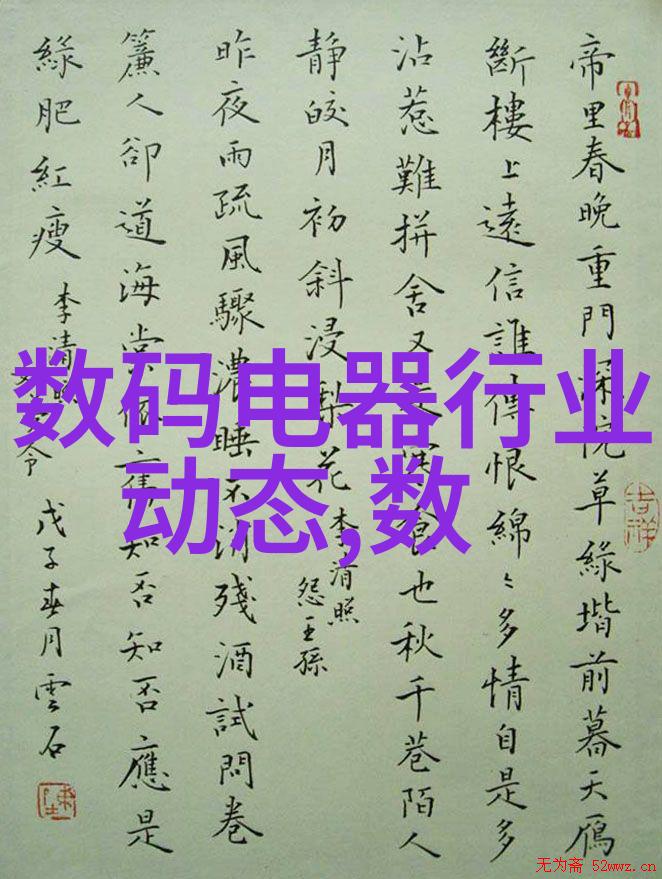 数码电器行业
动态,数
帝里春晚重門深院草緑堦前暮天鴈
斷樓上遠信誰傳恨綿〻多情自是多
沾惹難拼舍又食也秋千巷陌人
静皎月初斜浸梨花
李清照
怨王孫
昨夜雨疏風驟濃睡不消殘酒試問卷
簾人卻道海棠依舊知否知否應是
緑肥紅瘦
李清照
令
戊子春月雲石
吉祥
无为斋 52wwz.cn